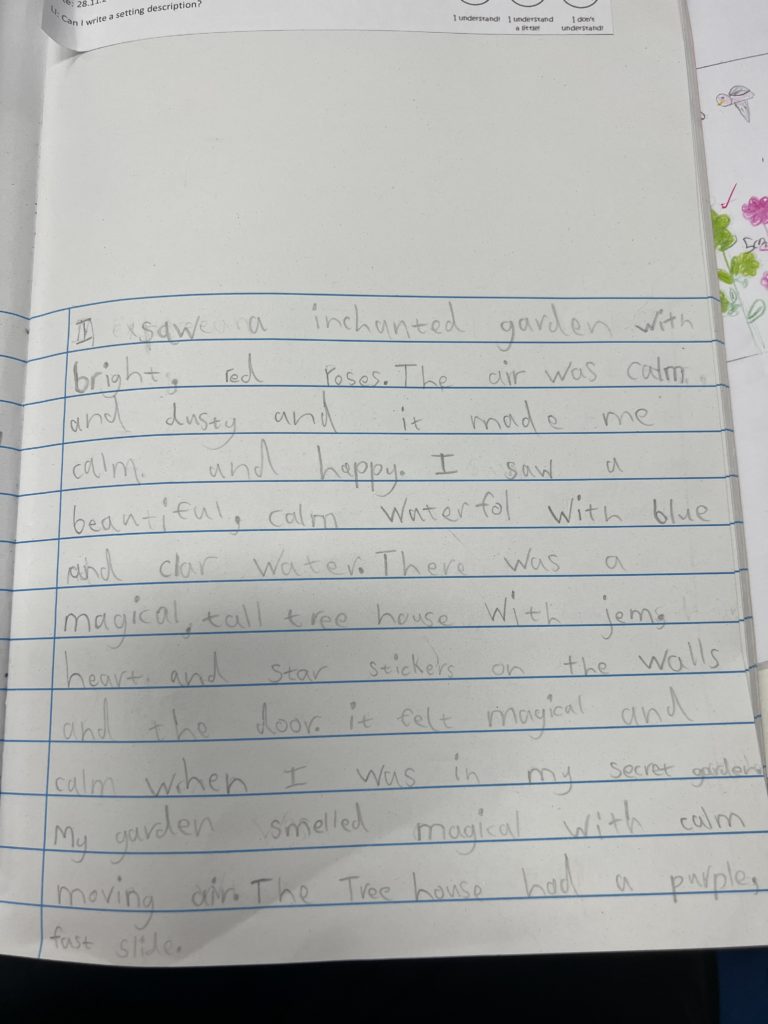 28.11.2
LI: Can I write a setting description?
I understand! I understand a little! I don't understand!
I saw a inchanted garden with
bright, red roses. The air was calm
and dusty and it made me
calm. and happy. I saw a
beautiful, calm waterfol with blue
and clar water. There was a
magical, tall tree house with jems
heart and star stickers on the walls
and the door. it felt magical and
calm when I was in my secret garden
My garden smelled magical with calm
moving air. The Tree house had a purple,
fast slide.